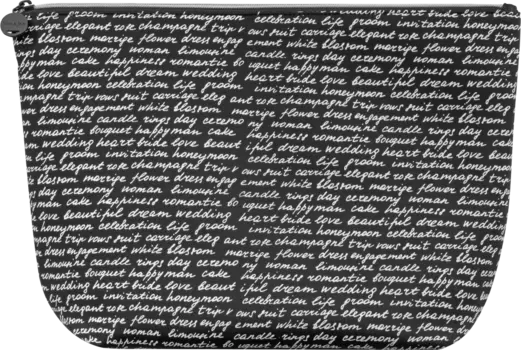 life groom invitation honeymoon celebration life groom invitation honeymoon
carriage elegant rok champagne trip vows suit carriage elegant rok champagne trip
flower dress engagement white blossom marryge flower dress eng
day ceremony woman limousine candle rings day ceremony woman limousine
man cake happiness romantic bouquet happy man cake happiness romantic
bride love beautiful dream wedding heart bride love beautiful dream wedding
honeymoon celebration life groom invitation honeymoon celebration life
champagne trip vows suit carriage elegant rok champagne trip vows suit carriage elegant
dress engagement white blossom marryge flower dress engagement white blossom
limousine candle rings day ceremony woman limousine candle rings day
romantic bouquet happy man cake happiness romantic bouquet happy man
wedding heart bride love beautiful dream wedding heart bride love
life groom invitation honeymoon celebration life groom invitation honeymoon
carriage elegant rok champagne trip vows suit carriage elegant rok champagne trip
marryge flower dress engagement white blossom marryge flower dress eng
day ceremony woman limousine candle rings day ceremony woman limousine
man cake happiness romantic bouquet happy man cake happiness romantic
love beautiful dream wedding heart bride love beautiful dream wedding
honeymoon celebration life groom invitation honeymoon celebration life
champagne trip vows suit carriage elegant rok champagne trip vows suit carriage
dress engagement white blossom marryge flower dress engagement white blossom
woman limousine candle rings day ceremony woman limousine candle rings day
romantic bouquet happy man cake happiness romantic bouquet happy man
dream wedding heart bride love beautiful dream wedding heart bride
life groom invitation honeymoon celebration life groom invitation
elegant rok champagne trip vows suit carriage elegant rok champagne
blossom marryge flower dress engagement white blossom marryge flower dress
ceremony woman limousine candle rings day ceremony woman
cake happiness romantic bouquet happy man cake happiness